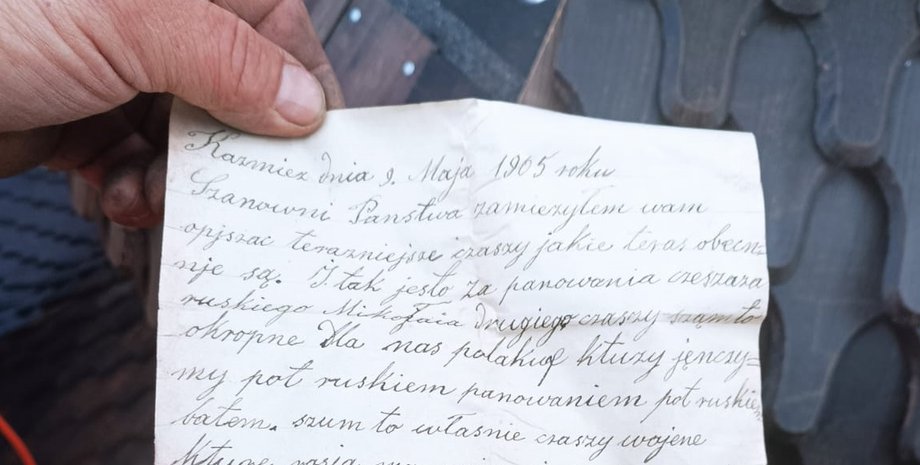 Kazmiez dnia 9. Maja 1905 roku
Szanowni Państwa zamiezyłem wam
opjszac terazniejsze czaszy jakie teras obecn=
nje są. I tak jesto za panowania czeszaza
ruskiego Mikołaia drugiego czaszy sząm to
okropne Dla nas polakuf ktuzy jęnczy=
my pot ruskiem panowaniem pot ruskiem
batem. szum to własnie czaszy wojene